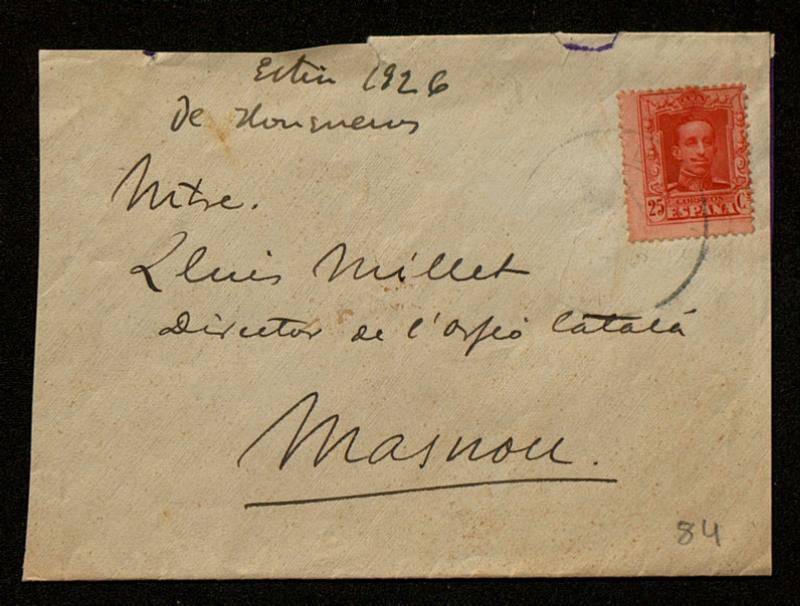 Estiu 1926
de
Mtre.
Lluis Millet
Director de l'Orfeó Català
Masnou.
CORREOS
25 ESPAÑA C
84